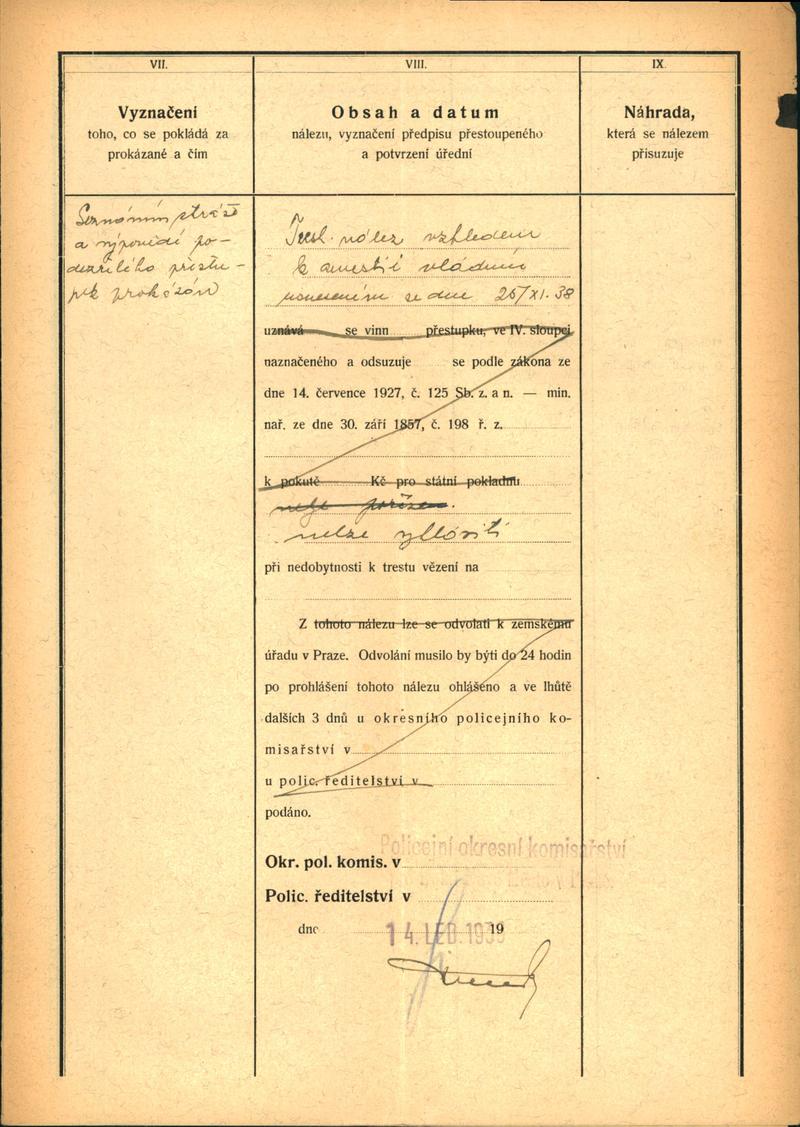 VII.
Vyznačení
toho, co se pokládá za
prokázané a čím
Seznáním stráže
a výpovědí po-
dezřelého přestu-
pek prokázán
VIII.
Obsah a datum
nálezu, vyznačení předpisu přestoupeného
a potvrzení úřední
Trest. nález vzhledem
k amestii vládním
usnesením ze dne 25/XI. 38
uznává se vinn přestupku, ve IV. sloupci
naznačeného a odsuzuje se podle zákona ze
dne 14. července 1927, č. 125 Sb. z. a n. — min.
nař. ze dne 30. září 1857, č. 198 ř. z.
k pokutě Kč pro státní pokladnu
nelze
nelze vysloviti
při nedobytnosti k trestu vězení na
Z tohoto nálezu lze se odvolati k zemskému
úřadu v Praze. Odvolání musilo by býti do 24 hodin
po prohlášení tohoto nálezu ohlášeno a ve lhůtě
dalších 3 dnů u okresního policejního ko-
misařství v
u polic. ředitelství v
podáno.
Policejní okresní komisařství
Okr. pol. komis. v
Polic. ředitelství v
dne 14. LED. 1939 19
IX.
Náhrada,
která se nálezem
přisuzuje